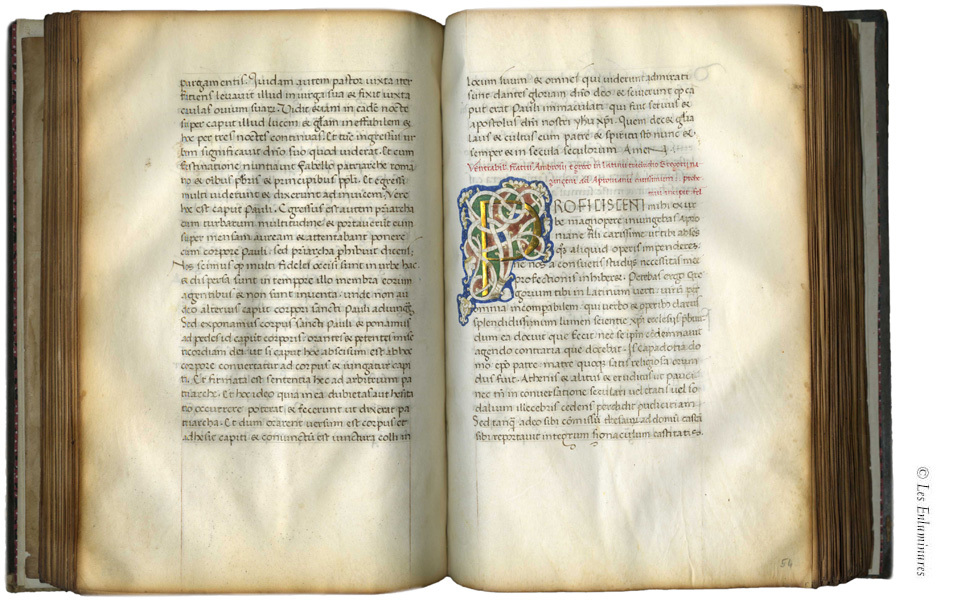 purgamentis. Quidam autem pastor iuxta iter
faciens levavit illud in virga sua & fixit iuxta
caulas ovium suarum. Vidit & iam in eadem nocte
super caput illud lucem & gloriam ineffabilem &
hoc per tres noctes continuas. Et tunc ingressus ur
bem significavit domino suo quod viderat. Et cum
festinatione nuntiavit Fabello patriarche roma
no & omnibus presbyteris & principibus populi. Et egressi
multi viderunt & dixerunt ad invicem. Vere
hoc est caput Pauli. Egressus est autem patriarcha
cum turbatum multitudine & portaverunt eum
super mensam auream & attentabant ponere
cum corpore Pauli: sed patriarcha prohibuit dicens:
nos scimus quod multi fideles occisi sunt in urbe hac
& dispersa sunt in tempore illo membra eorum
agentibus & non sunt inventa: unde non au
deo alterius caput corpori sancti Pauli adiungere
Sed exponamus corpus sancti Pauli & ponamus
ad pedes id caput corporis: orantes & petentes mise
ricordiam dei: ut si caput hoc abscisum est ab hoc
corpore convertatur ad corpus & iungatur capi
ti. Et firmata est sententia hec ad arbitrium pa
triarche. Et hoc ideo quia in ea dubietas aut hesita
tio occurrere poterat: & fecerunt ut dixerat pa
triarcha. Et dum orarent versum est corpus et
adhesit capiti & coniunctum est iunctura colli in
locum suum & omnes qui viderunt admirati
sunt dantes gloriam domino deo & scierunt quod ca
put erat Pauli immaculati qui fuit servus &
apostolus domini nostri yhu xpi. Quem decet gloria
laus & cultus cum patre & spiritu sto nunc &
semper & in secula seculorum Amen
PROFICISCENTI mihi ex ur
be magnopere iniungetis Apro
niane fili carissime ut tibi ables
quod aliquid operis impenderes.
profectionis inhiberet. Petebas ergo Gre
gorium tibi in Latinum verti: virum per
omnia incomparabilem: qui verbo & operibus clarus
splendidissimum lumen scientie xpi ecclesiis prebuit
dum ea docuit que fecit nec se ipsum condemnavit
agendo contraria que docebat. Is Capadotia do
mo epo patre matre quoque satis religiosa orium
dus fuit. Athenis & alatus & eruditus ut parici
nec tamen in conversatione seculari vel etatis vel so
dalium illecebris cedens perdidit pudicitiam.
Sed tanquam a deo sibi comissum thesaurum ad domum casti
sibi reportavit integrum signaculum castitatis.
54
© Les Enluminures